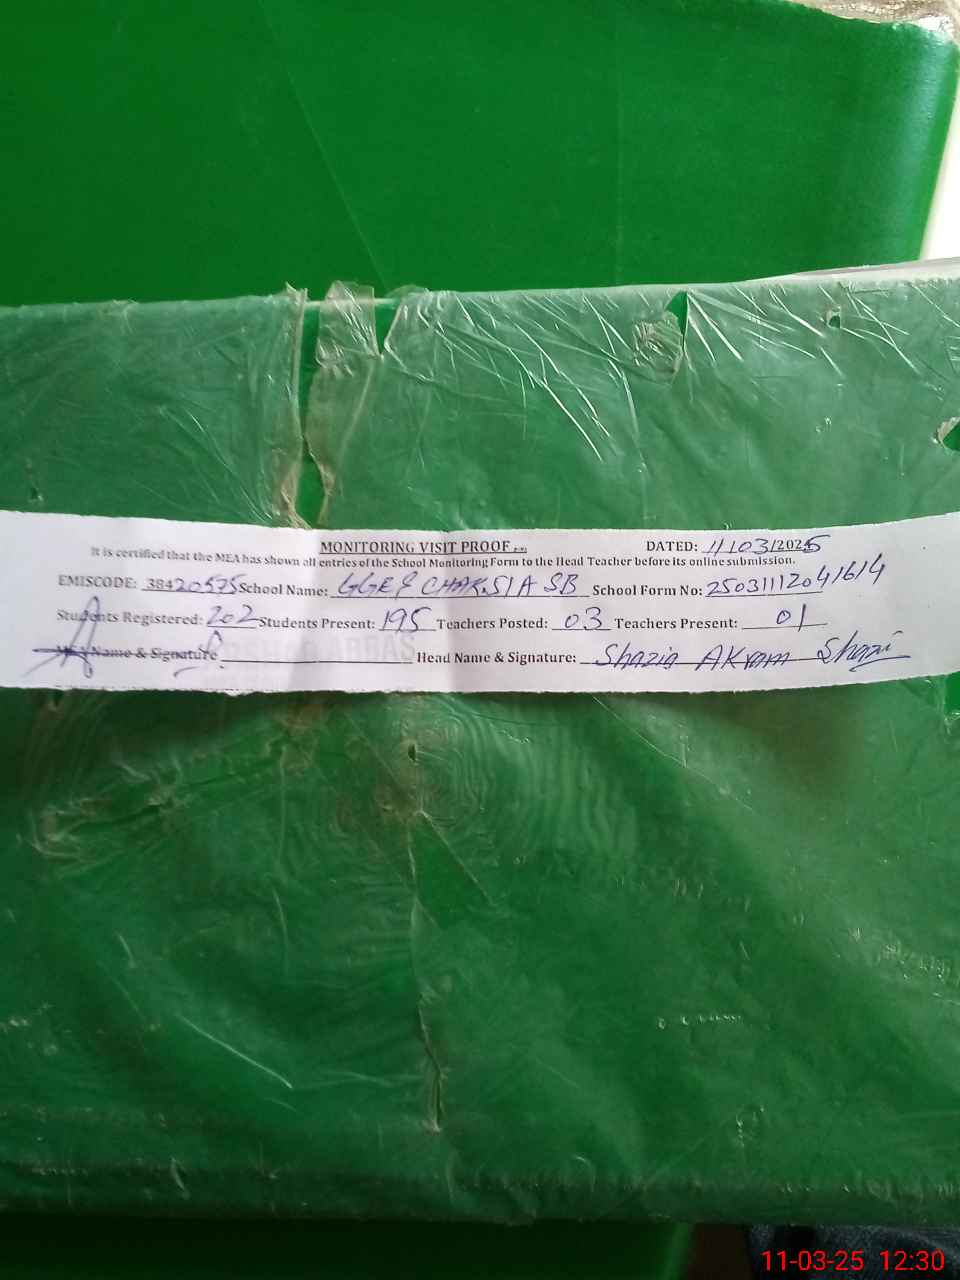 MONITORING VISIT PROOF
DATED: 11/03/2025
It is certified that the MEA has shown all entries of the School Monitoring Form to the Head Teacher before its online submission.
EMISCODE: 38420575 School Name: CHAK.51A SB School Form No: 25031112041614
Students Registered: 202 Students Present: 195 Teachers Posted: 03 Teachers Present: 01
MEA Name & Signature ABBAS Head Name & Signature: Shazia AKram
11-03-25 12:30